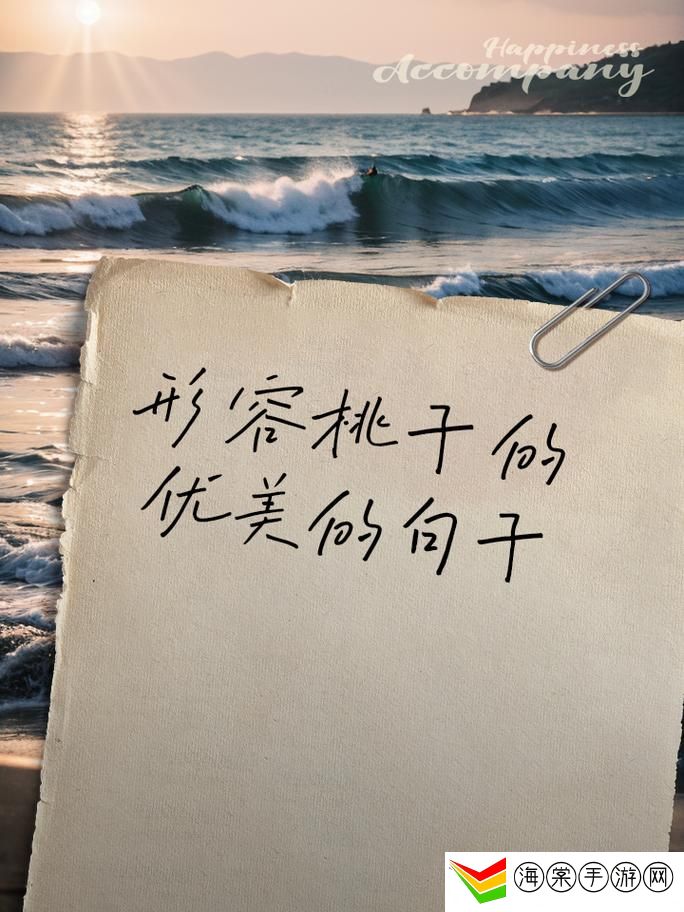 Happiness
Accompany
形容桃子的
优美的句子
海棠手游网